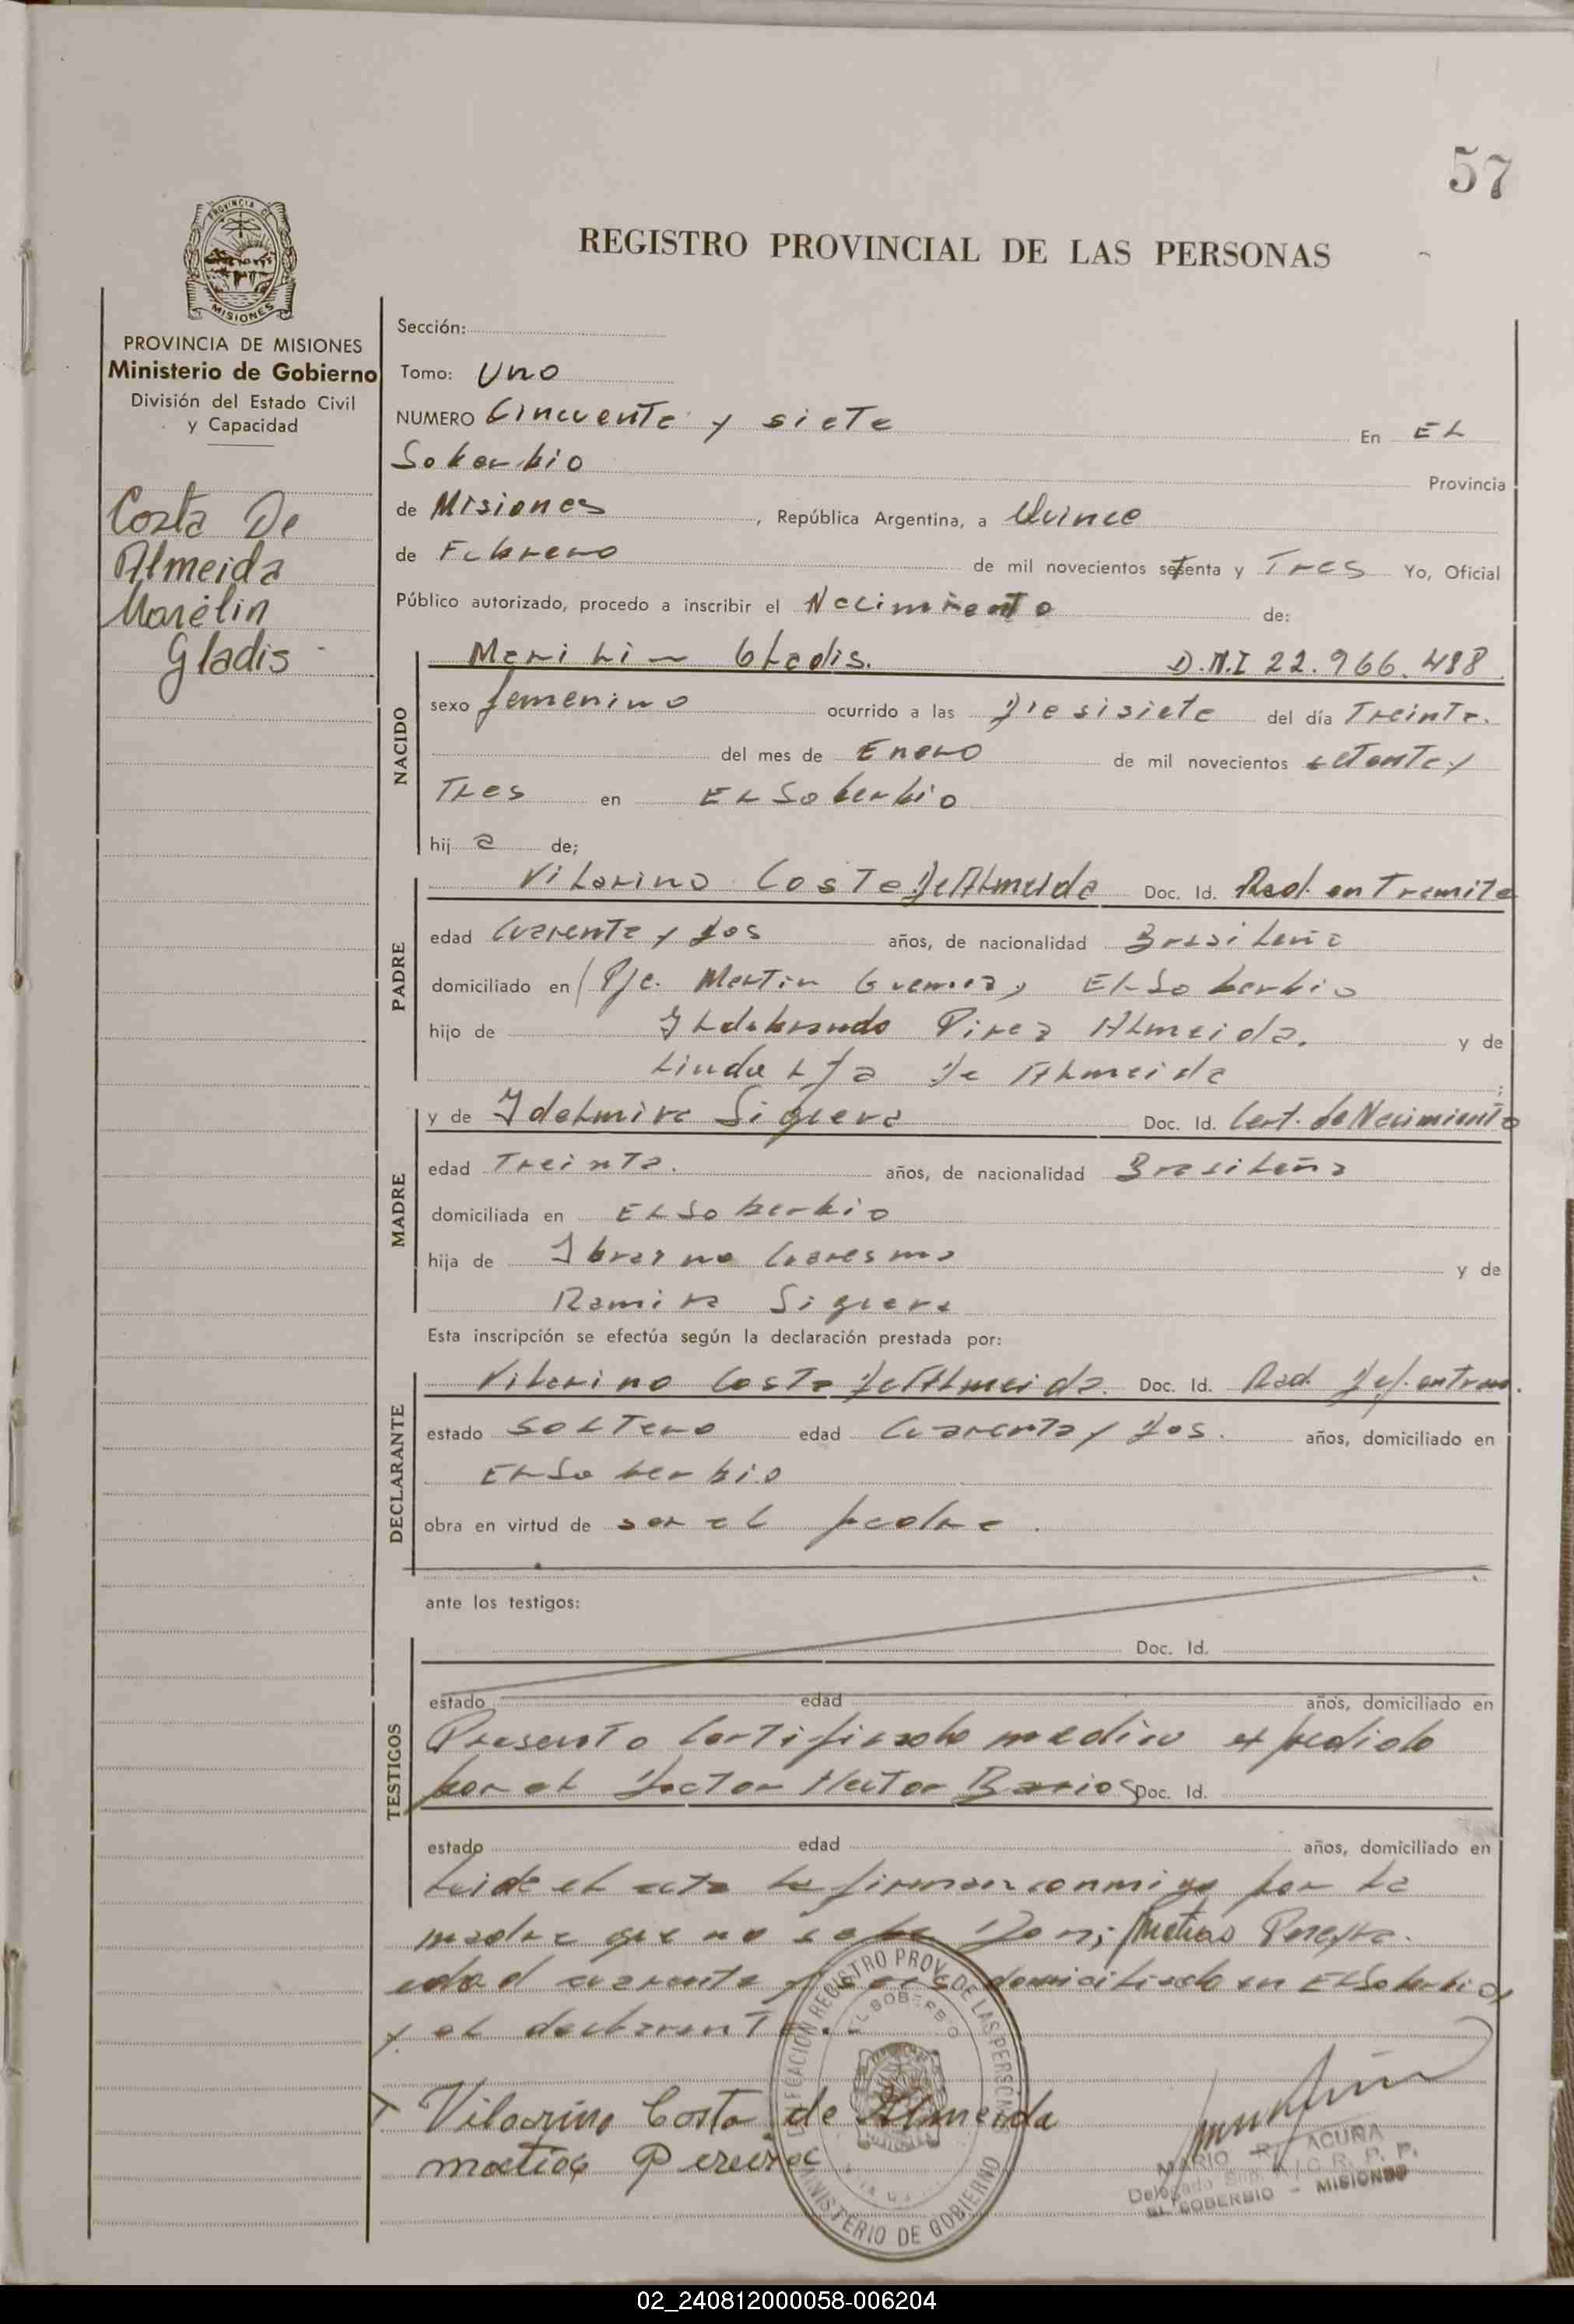 57
PROVINCIA DE MISIONES
REGISTRO PROVINCIAL DE LAS PERSONAS
PROVINCIA DE MISIONES
Ministerio de Gobierno
División del Estado Civil
y Capacidad
Costa De
Almeida
Marilin
Gladis
Sección:
Tomo: Uno
NUMERO Cincuenta y siete En EL
Soberbio Provincia
de Misiones, República Argentina, a Quince
de Febrero de mil novecientos setenta y Tres Yo, Oficial
Público autorizado, procedo a inscribir el Nacimiento de:
NACIDO
Marilin Gladis. D.N.I 22.966.488
sexo femenino ocurrido a las Diesisiete del día Treinta.
del mes de Enero de mil novecientos setenta y
Tres en EL Soberbio
hij a de;
PADRE
Vilarino Costa De Almeida Doc. Id. Rad. en Tramite
edad Cuarenta y Dos años, de nacionalidad Brasileña
domiciliado en Pje. Martin Guemez, El Soberbio
hijo de Ildebrando Pirez Almeida. y de
Linda De Almeida
MADRE
y de Idelmira Siguera Doc. Id. Cert. de Nacimiento
edad Treinta. años, de nacionalidad Brasileña
domiciliada en EL Soberbio
hija de y de
Ramira Siguera
Esta inscripción se efectúa según la declaración prestada por:
DECLARANTE
Vilarino Costa De Almeida. Doc. Id. Rad.
estado Soltero edad Cuarenta y Dos. años, domiciliado en
EL Soberbio
obra en virtud de ser el padre.
ante los testigos:
TESTIGOS
Doc. Id.
estado edad años, domiciliado en
Presento Certificado medico expedido
por el Doctor Hector Barios Doc. Id.
estado edad años, domiciliado en
Leida el acta la firman conmigo por la
madre que no sabe Don; Matias
edad cuarenta domiciliado en El Soberbio,
y el declarante.
Vilarino Costa de Almeida
matias Pereira
DELEGACION REGISTRO PROV. DE LAS PERSONAS
EL SOBERBIO
MISIONES
MINISTERIO DE GOBIERNO
MARIO R. ACUÑA
EL SOBERBIO - MISIONES
02_240812000058-006204